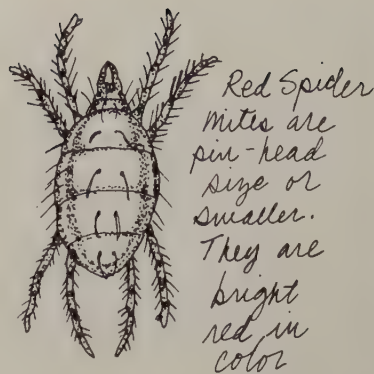 Red Spider
mites are
pin-head
size or
smaller.
They are
bright
red in
color